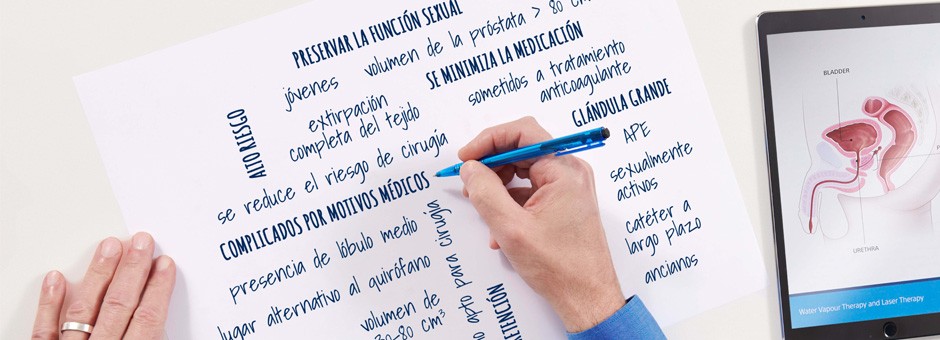 PRESERVAR LA FUNCIÓN SEXUAL
jóvenes
volumen de la próstata > 80 cm³
SE MINIMIZA LA MEDICACIÓN
sometidos a tratamiento
anticoagulante
ALTO RIESGO
extirpación
completa del tejido
GLÁNDULA GRANDE
APE
se reduce el riesgo de cirugía
sexualmente
activos
COMPLICADOS POR MOTIVOS MÉDICOS
catéter a
largo plazo
presencia de lóbulo medio
ancianos
lugar alternativo al quirófano
no apto para cirugía
volumen de
cm³
BLADDER
URETHRA
Water Vapour Therapy and Laser Therapy